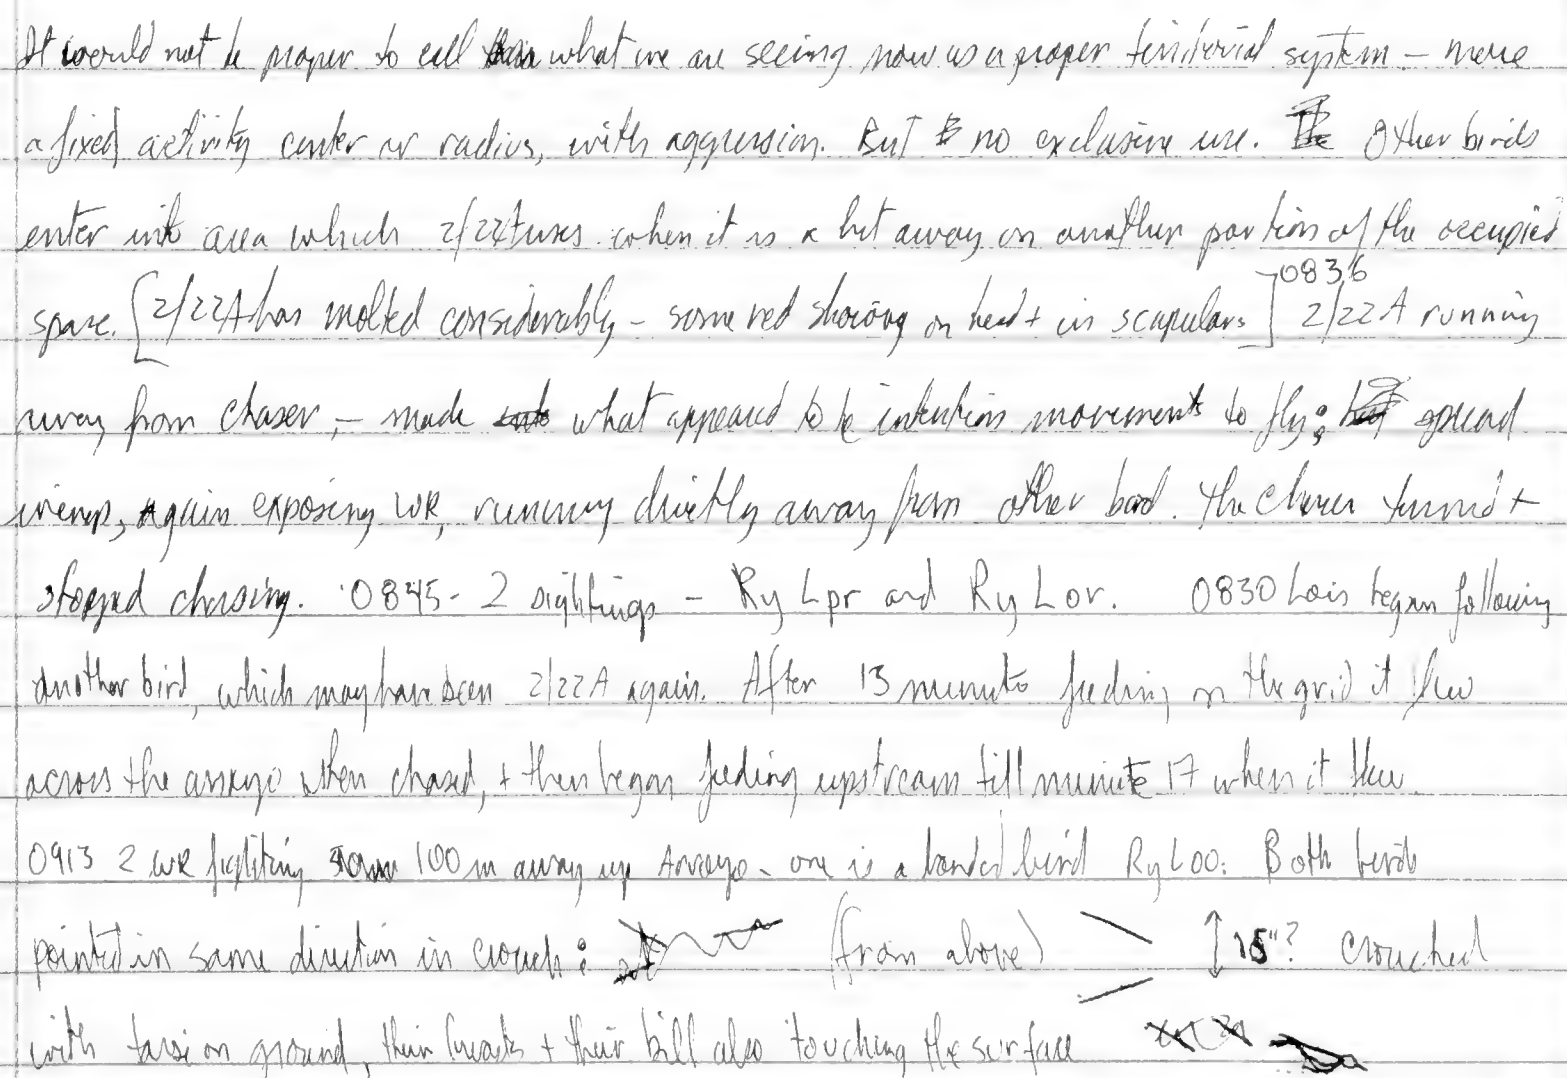 It would not be proper to call what we are seeing now as a proper territorial system – more
a fixed activity center or radius, with aggression. But no exclusive use. Other birds
enter into area which 2/22A uses when it is a bit away on another portion of the occupied
space. [2/22A has molted considerably – some red showing on head + in scapulars] 0836 2/22A running
away from chaser, – made what appeared to be intention movements to fly; spread
wings, again exposing WR, running directly away from other bird. The chaser turned +
stopped chasing. 0845 - 2 sightings – Ry Lpr and Ry Lor. 0830 Lois began following
another bird, which may have been 2/22A again. After 13 minutes feeding on the grid it flew
across the arroyo when chased, + then began feeding upstream till minute 17 when it flew.
0913 2 WR fighting 100 m away up Arroyo - one is a banded bird Ry LOO. Both birds
pointed in same direction in crouch: (from above) 15"? Crouched
with tarsi on ground, their breasts + their bill also touching the surface